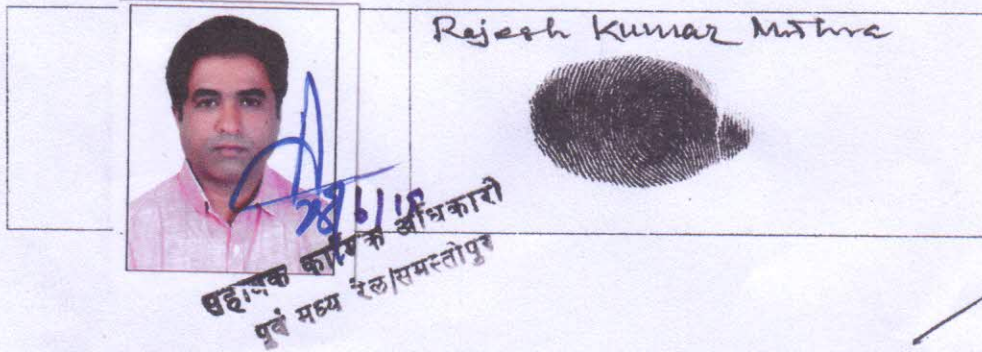 Rajesh Kumar Mithra
28/6/18
सहायक कार्मिक अधिकारी
पूर्व मध्य रेल/समस्तीपुर